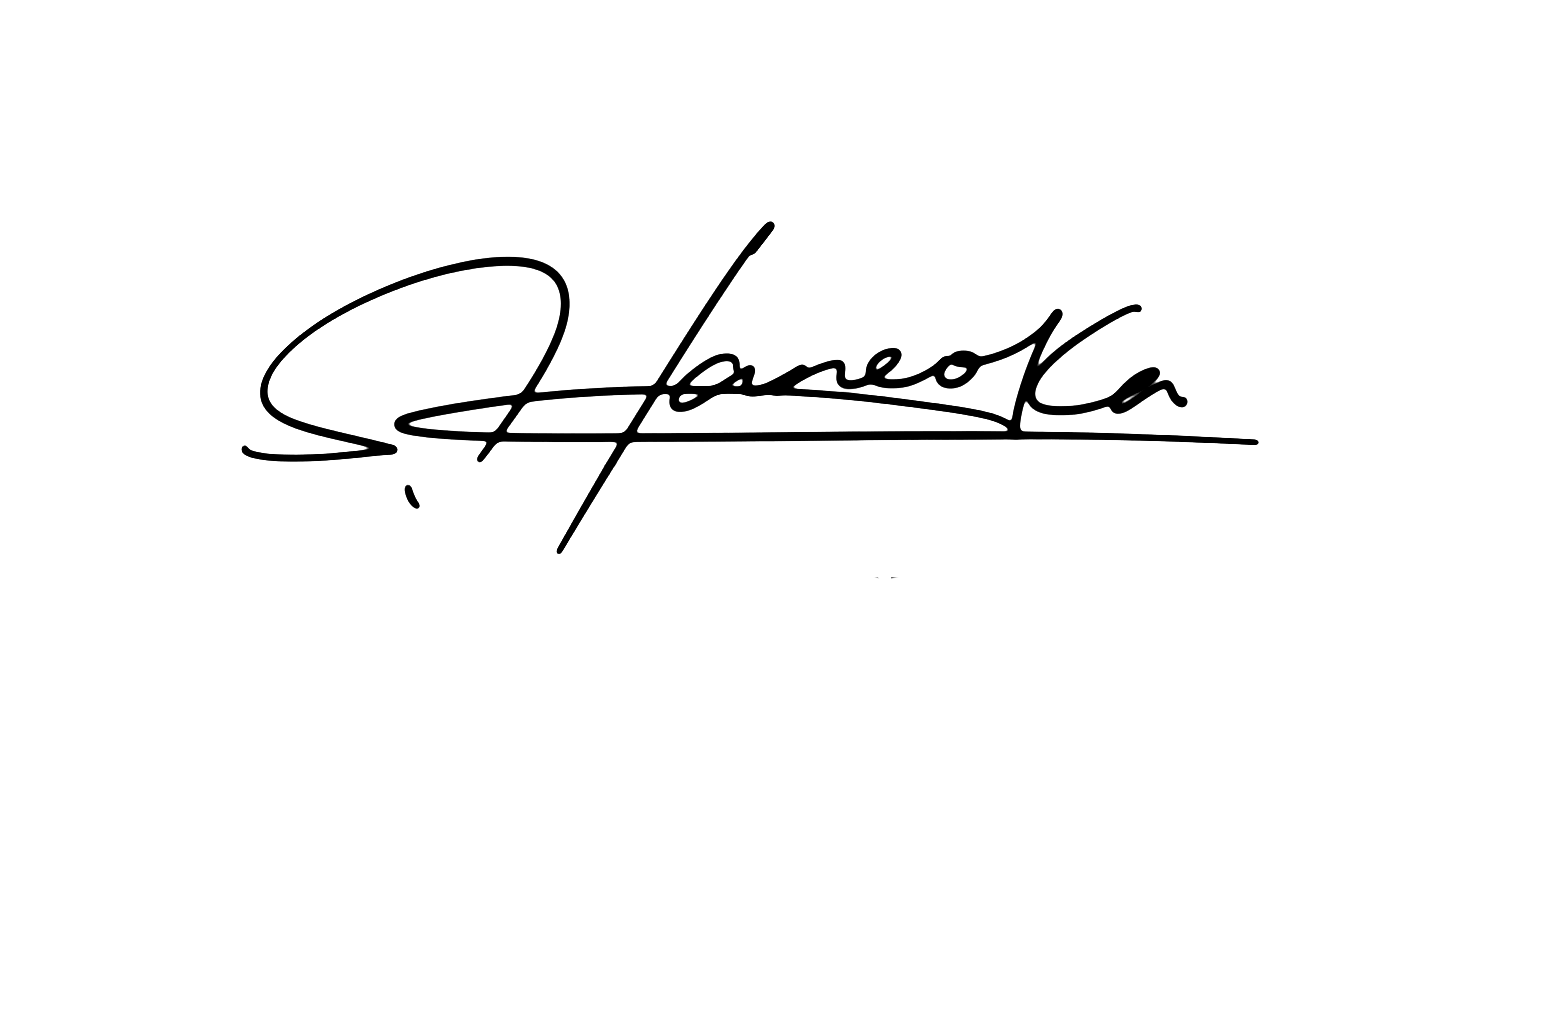 S. Haneoka